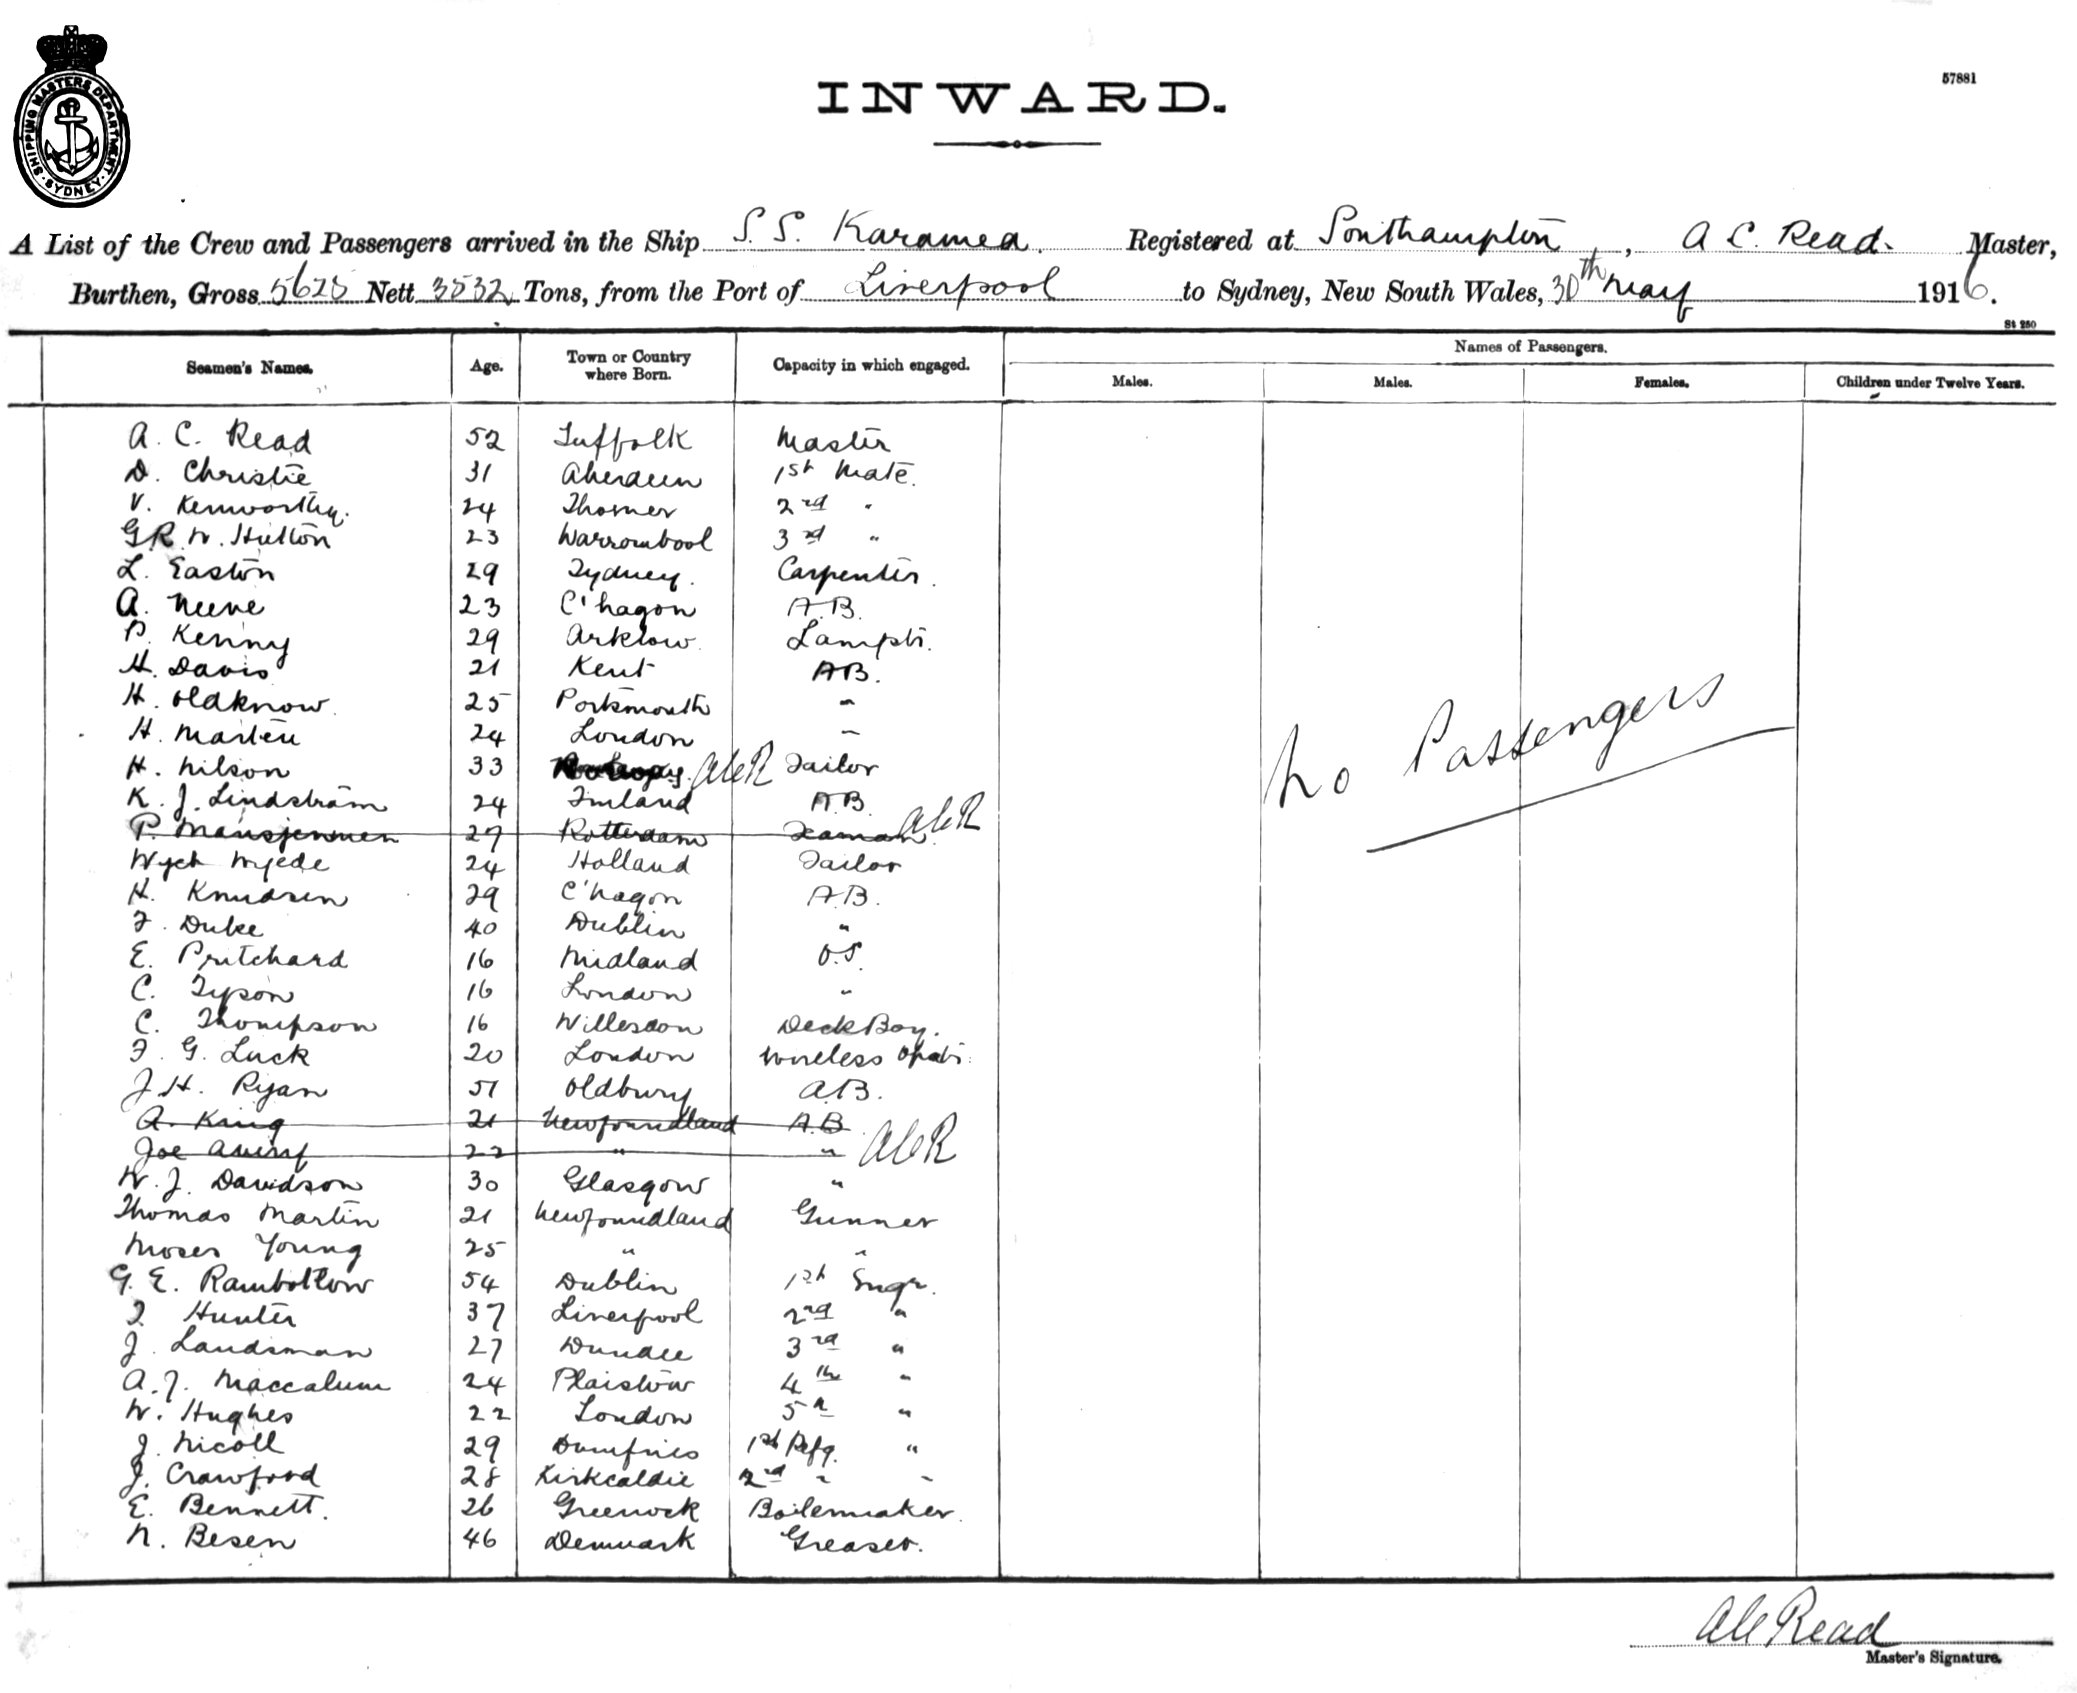 SHIPPING MASTERS DEPARTMENT · SYDNEY ·
57881
INWARD.
A List of the Crew and Passengers arrived in the Ship S.S. Karamea. Registered at Southampton, A C. Read. Master,
Burthen, Gross 5625 Nett 3532 Tons, from the Port of Liverpool to Sydney, New South Wales, 30th May 1916.
St 250
Seamen's Names. Age. Town or Country where Born. Capacity in which engaged. Names of Passengers.
Males. Males. Females. Children under Twelve Years.
A. C. Read 52 Suffolk Master
D. Christie 31 Aberdeen 1st Mate.
V. Kenworthy. 24 Thorner 2nd "
G R W. Hutton 23 Warrombool 3rd "
L. Easton 29 Sydney. Carpenter.
A. Neeve 23 C'hagon A.B.
P. Kenny 29 Arklow. Lamptr.
H. Davis 21 Kent AB.
H. Oldknow 25 Portsmouth "
H. Marten 24 London "
H. Nilson 33 ACR Sailor
K. J. Lindstrăm 24 Finland A.B.
P. 27 Rotterdam Seaman ACR
Wych Wyede 24 Holland Sailor
H. Knudsen 29 C'hagon A.B.
F. Duke 40 Dublin "
E. Pritchard 16 Midland O.S.
C. Tyson 16 London "
C. Thompson 16 Willesdon Deck Boy.
F. G. Luck 20 London Wireless Opatr.
J. H. Ryan 51 Oldbury A.B.
A. King 21 Newfoundland A.B.
Joe Avery 22 " " ACR
W. J. Davidson 30 Glasgow "
Thomas Martin 21 Newfoundland Gunner
Moses Young 25 " "
G. E. Rambottow 54 Dublin 1st Engr.
J. Hunter 37 Liverpool 2nd "
J. Landsman 27 Dundee 3rd "
A. J. Maccalum 24 Plaistow 4th "
W. Hughes 22 London 5th "
J. Nicoll 29 Dumfries 1st Refg. "
J. Crawford 28 Kirkcaldie 2nd " "
E. Bennett. 26 Greenock Boilermaker.
N. Besen 46 Denmark Greaser.
No Passengers
AC Read
Master's Signature.